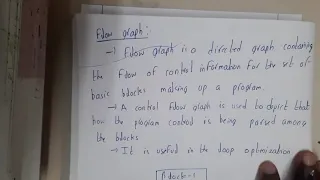 Flow graph:
→ Flow graph is a directed graph containing
the flow of control information for the set of
basic blocks making up a program.
→ A control flow graph is used to depict that
how the program control is being parsed among
the blocks
→ It is useful in the loop optimization
Block-1